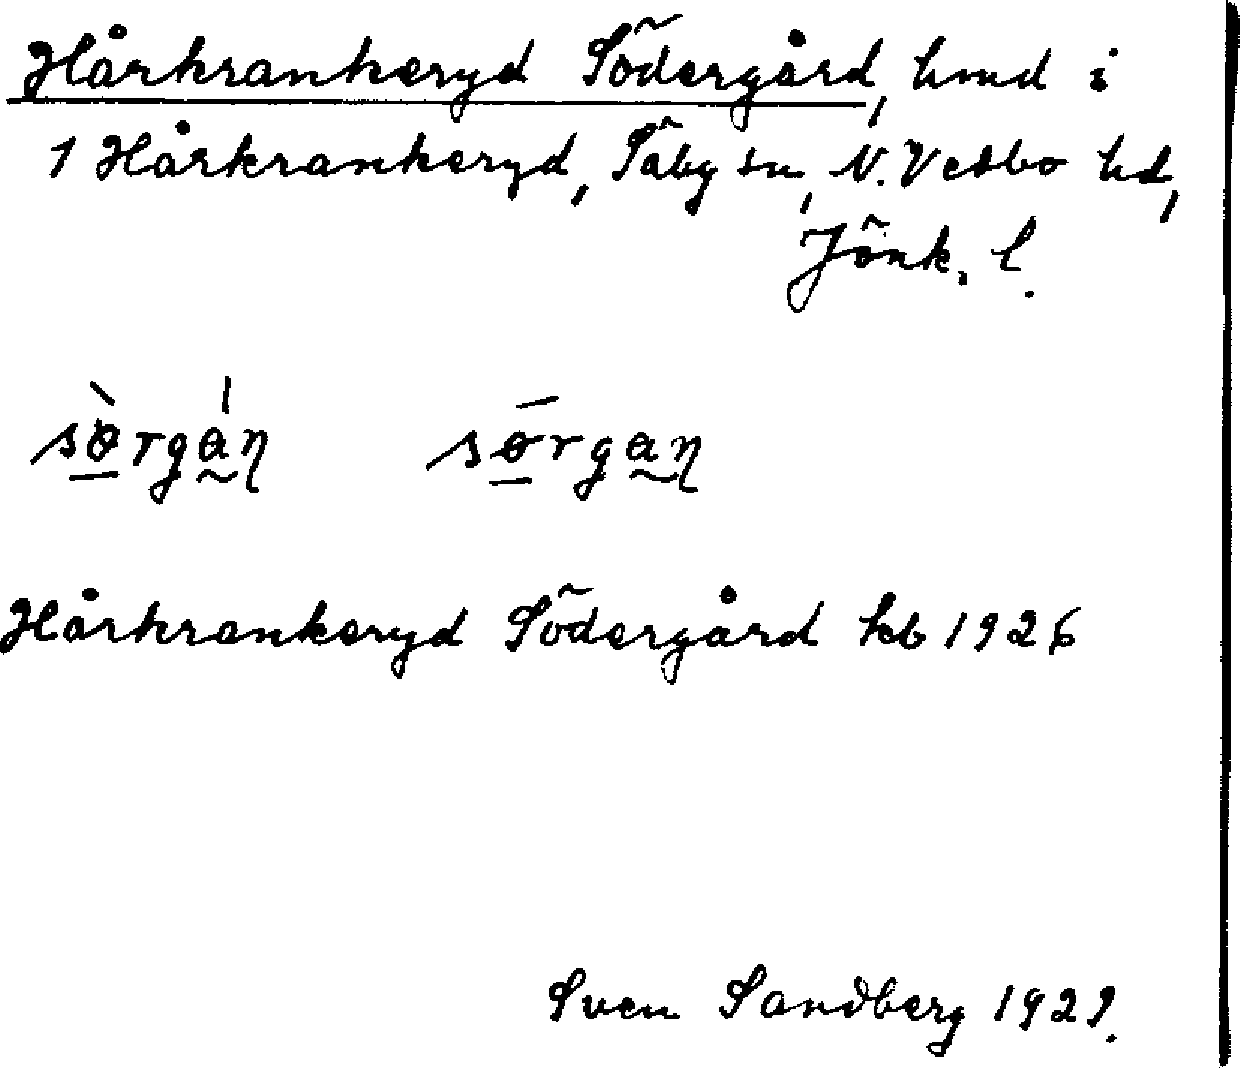 Hårkrankeryd Södergård, hmd i
1 Hårkrankeryd, Säby sn, N. Vedbo hd,
Jönk. l.
sø̀rgán sørgan
Hårkrankeryd Södergård kb 1926
Sven Sandberg 1929.